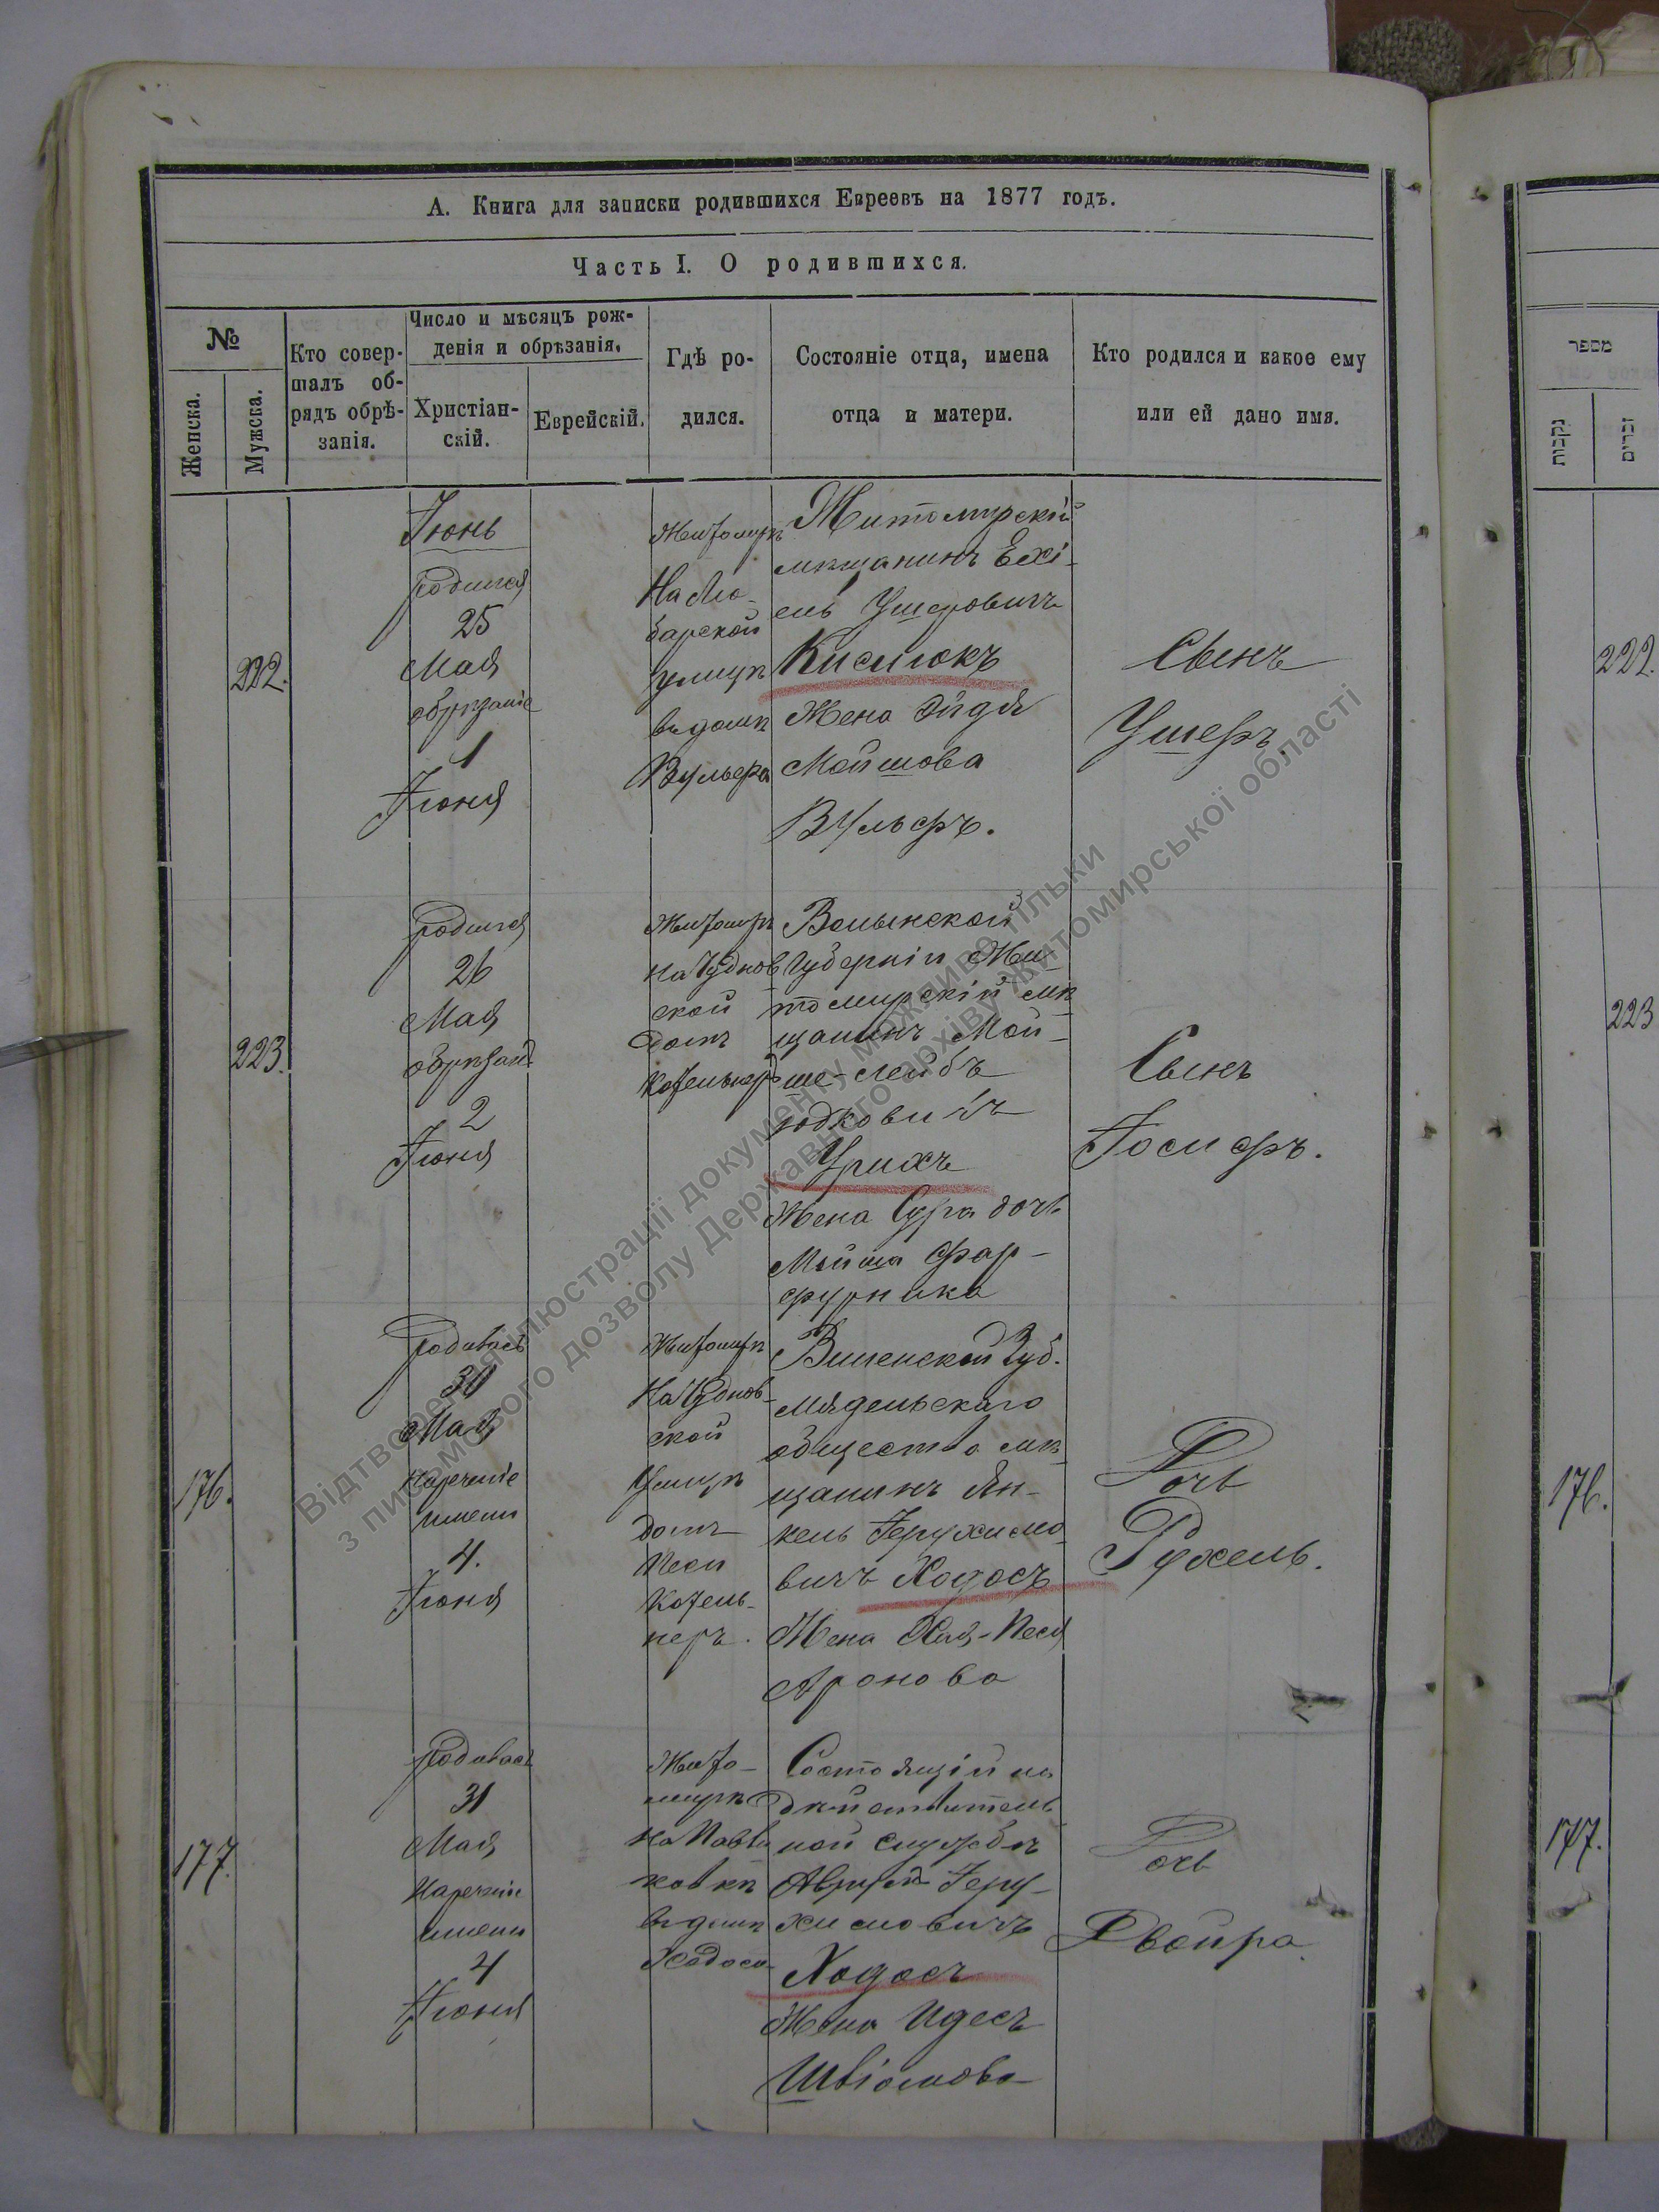 А. Книга для записки родившихся Евреевъ на 1877 годъ.
Часть I. О родившихся.
№
Женска.
Мужска.
Кто совер-
шалъ об-
рядъ обрѣ-
занія.
Число и мѣсяцъ рож-
денія и обрѣзанія.
Христіан-
скій.
Еврейскій.
Гдѣ ро-
дился.
Состояніе отца, имена
отца и матери.
Кто родился и какое ему
или ей дано имя.
222.
Іюнь
родился
25
Мая
обрѣзаніе
1
Іюня
Житомирѣ
На Лю-
барской
улицѣ
въ домѣ
Вульфа
Житомирскій
мѣщанинъ Ехі-
ель Ушеровичъ
Киснюкъ
Жена Эйдя
Мойшова
Вульфъ.
Сынъ
Ушеръ.
223.
родился
26
Мая
обрѣзаніе
2
Іюня
Житомирѣ
на Чуднов
ской
домъ
Волынской
Губерніи Жи-
томирскій мѣ
щанинъ Мой-
ше-Лейбъ
Урихъ
Жена Сура дочь
Мойша Фар-
фурника
Сынъ
Іосифъ.
176.
родилась
30
Мая
Нареченіе
имени
4.
Іюня
Житомирѣ
На Чуднов-
ской
Улицѣ
домъ
Песи
Котель-
неръ.
Виленской Губ.
Мядельскаго
общество мѣ
щанинъ Ян-
кель Іерухимо
вичъ Ходосъ
Жена Хая-Песя
Аронова
Дочь
Рухель.
177.
родилась
31
Мая
Нареченіе
имени
4
Іюня
Жито-
мирѣ
въ домѣ
Ходоса
Состоящій на
дѣйствитель
ной службѣ
Іеру-
химовичъ
Ходосъ
Жена Идесъ
Дочь
Двойра.
מספר
נקבות
זכרים
222.
223
176.
177.
Відтворення ілюстрації документу можливо тільки
з письмового дозволу Державного архіву Житомирської області